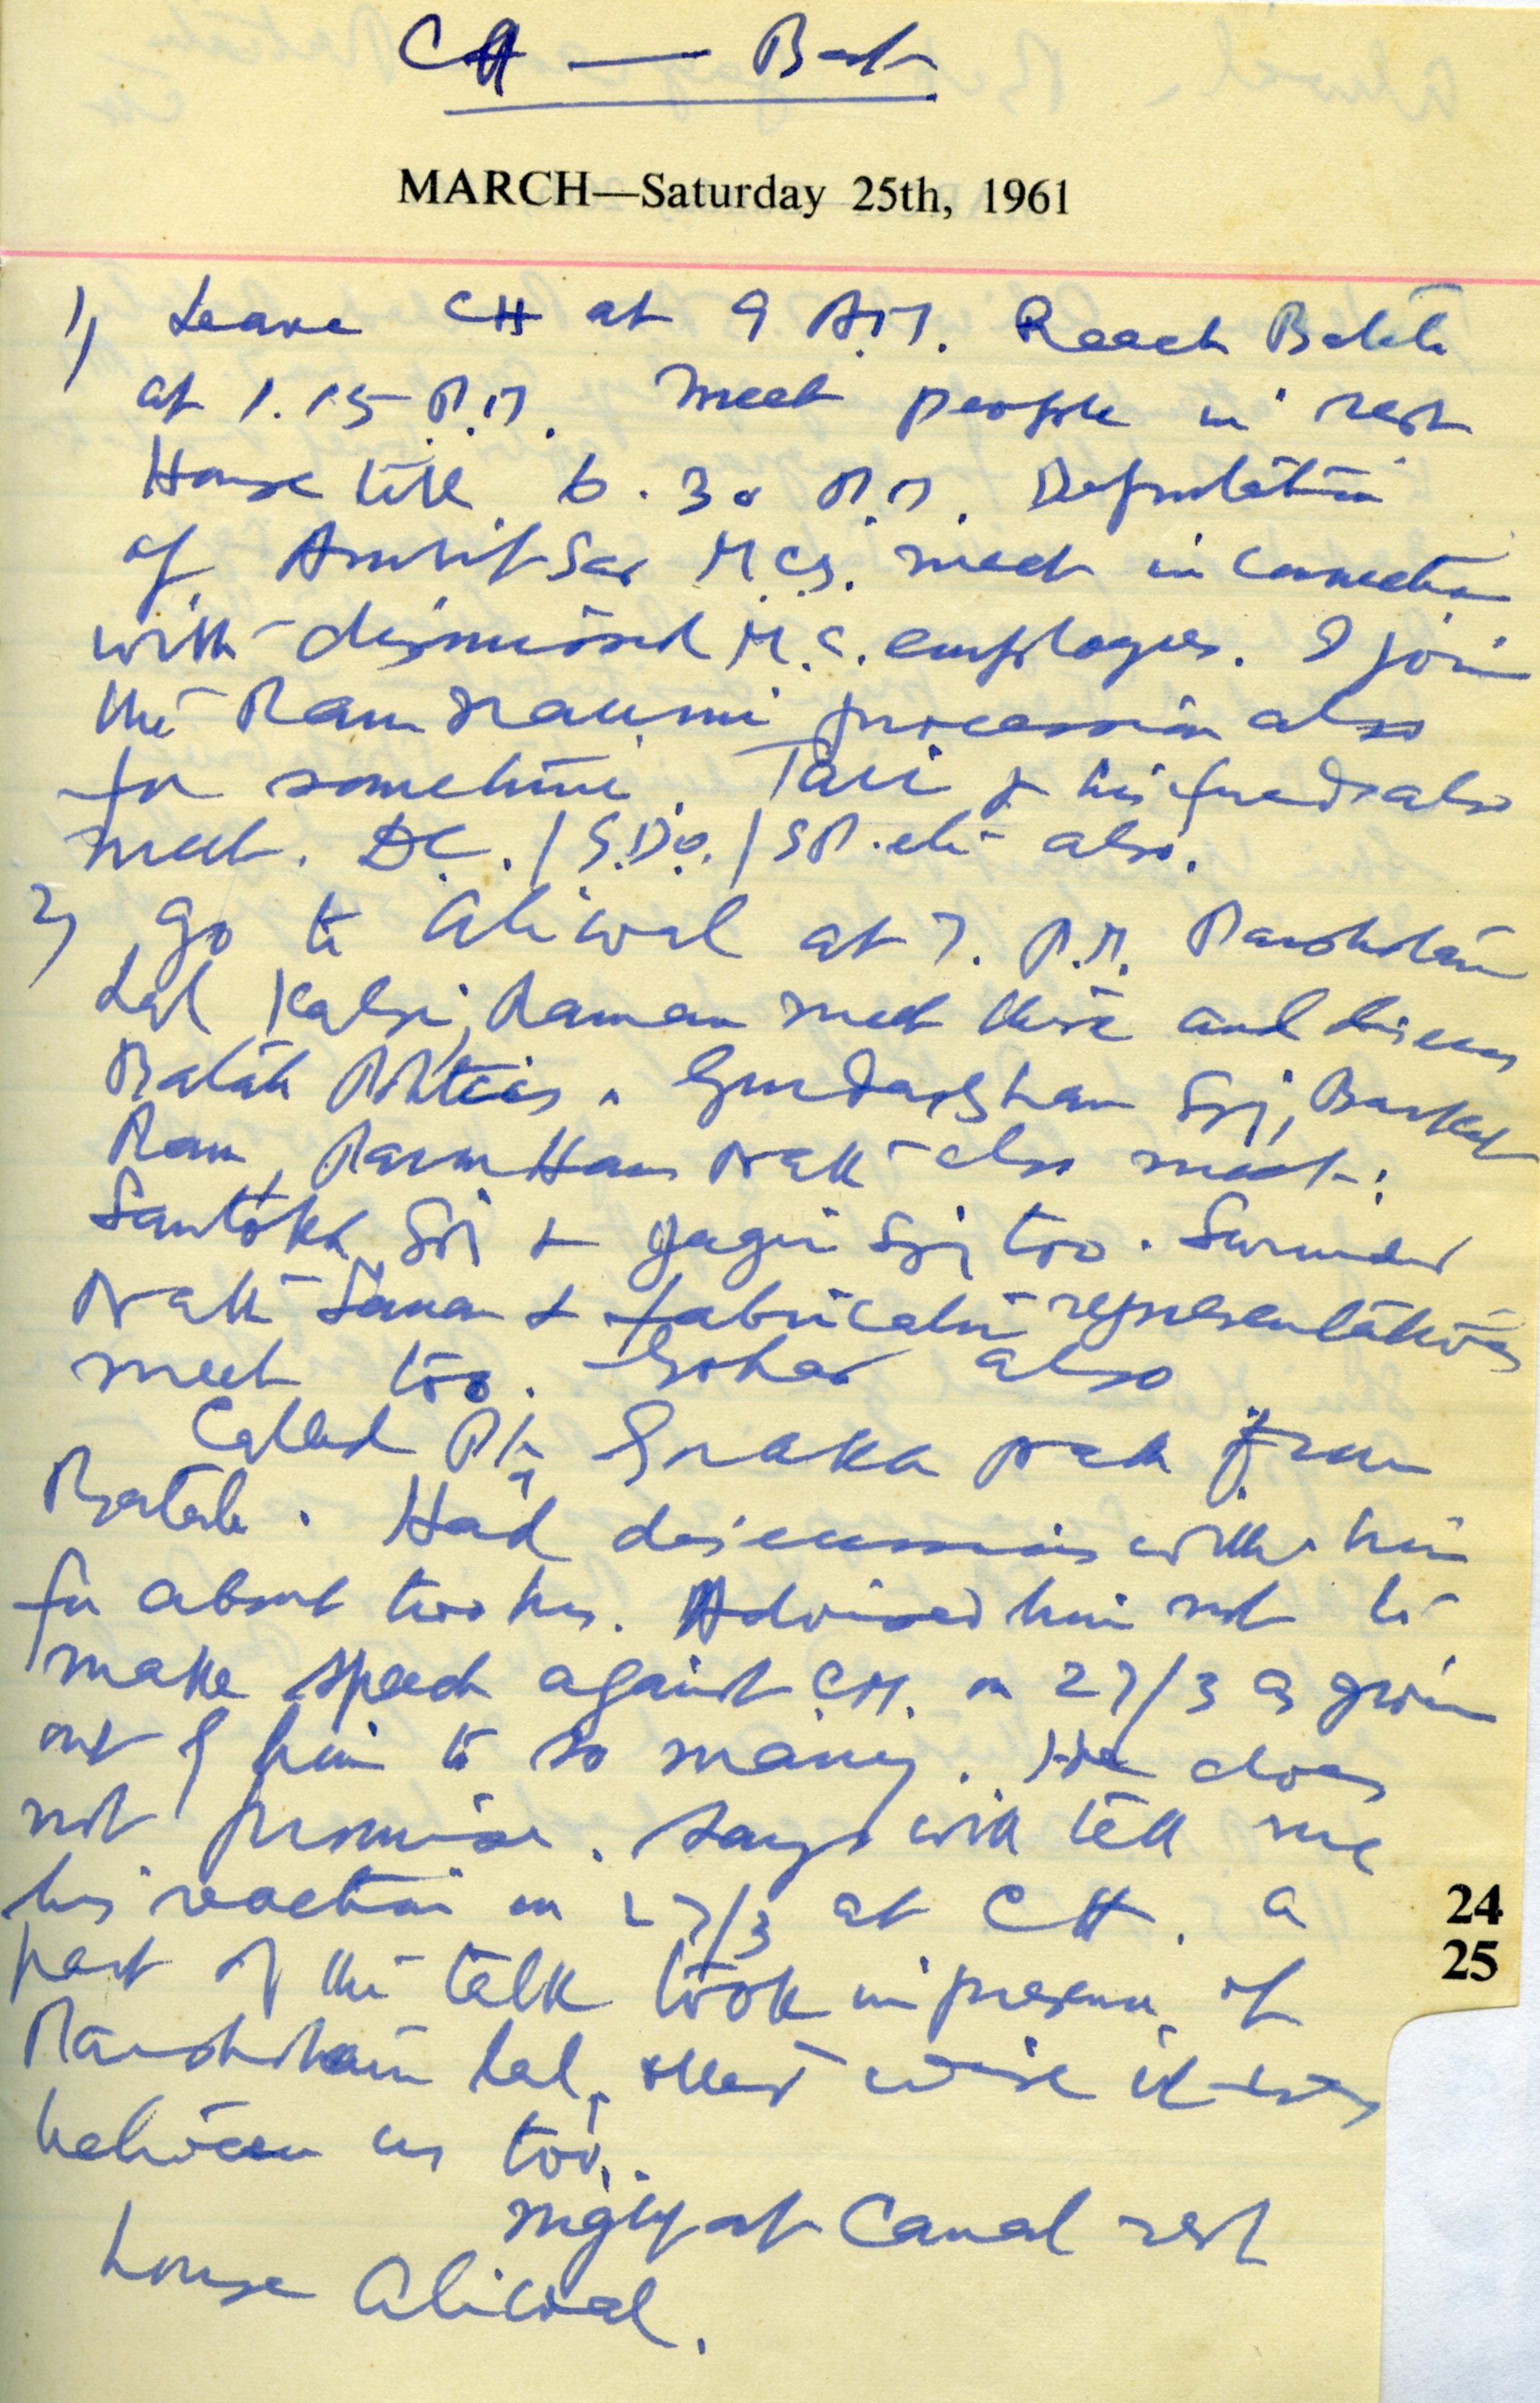 CH — Bat
MARCH—Saturday 25th, 1961
1) Leave CH at 9 A.M. Reach Batala
at 1.15 P.M. Meet people in rest
House till 6.30 P.M. Deputation
of Amritsar M.Cs. meet in connection
with dismissed M.C. employees. I join
the Ram Naumi procession also
for sometime. & his friends also
meet. D.C./S.D.O./S.P. etc also.
2) Go to Aliwal at 7. P.M. Parshotam
Lal Kalsi, Raman meet there and discuss
Batala Politics. Gurdarshan Sgj, Barkat
Ram, Nath also meet.
Santokh Sgj & Jagir Sgj too. Surinder
Nath & representatives
meet too. also
Called Pt. Gorakh Nath from
Batala. Had discussions with him
for about two hrs. Advised him not to
make speech against C.M. on 27/3 as given
out by him to so many. He does
not promise. Says will tell me
his reaction on 27/3 at CH. A
part of the talk took in presence of
Parshotam Lal, other wise it was
between us too.
Night at Canal rest
house Aliwal.
24
25